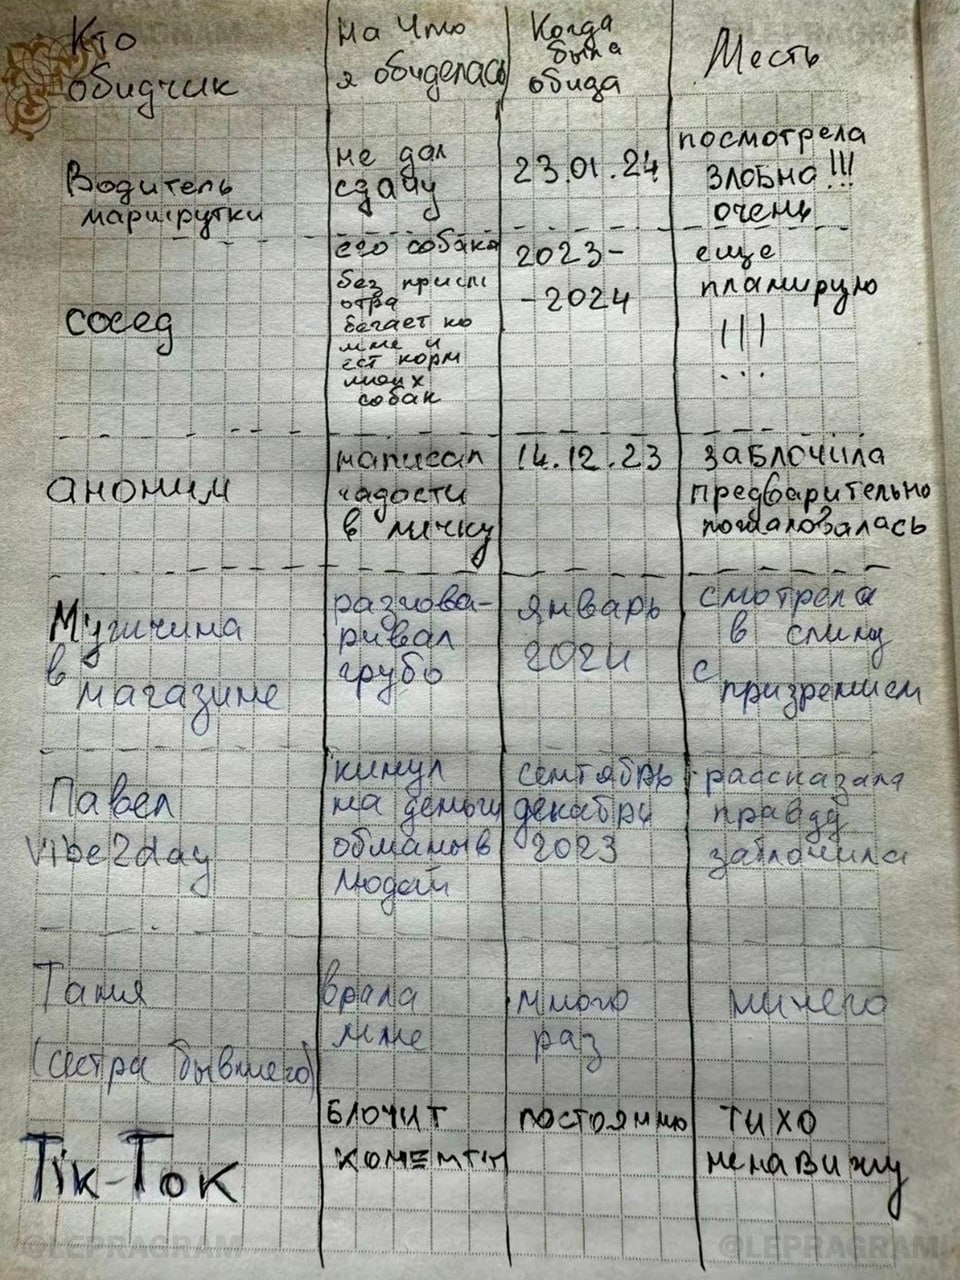 @LEPRAGRAM
@LEPRAGRAM
Кто
обидчик
на что
я обиделась
Когда
была
обида
Месть
Водитель
маршрутки
не дал
сдачу
23.01.24
посмотрела
злобно!!!
очень
сосед
его собака
без присм
отра
бегает ко
мне и
ест корм
моих
собак
2023-
-2024
еще
планирую
!!!
...
аноним
написал
гадости
в личку
14.12.23
заблочила
предварительно
пожаловалась
Мужчина
в
магазине
разгова-
ривал
грубо
январь
2024
смотрела
в спину
с
призрением
Павел
vibe2day
кинул
на деньги
обманыв
людей
сентябрь
декабрь
2023
рассказала
правду
заблочила
Таня
(сестра бывшего)
врала
мне
много
раз
ничего
Tik-Tok
блочит
коменты
постоянно
тихо
ненавижу
@LEPRAGRAM
@LEPRAGRAM